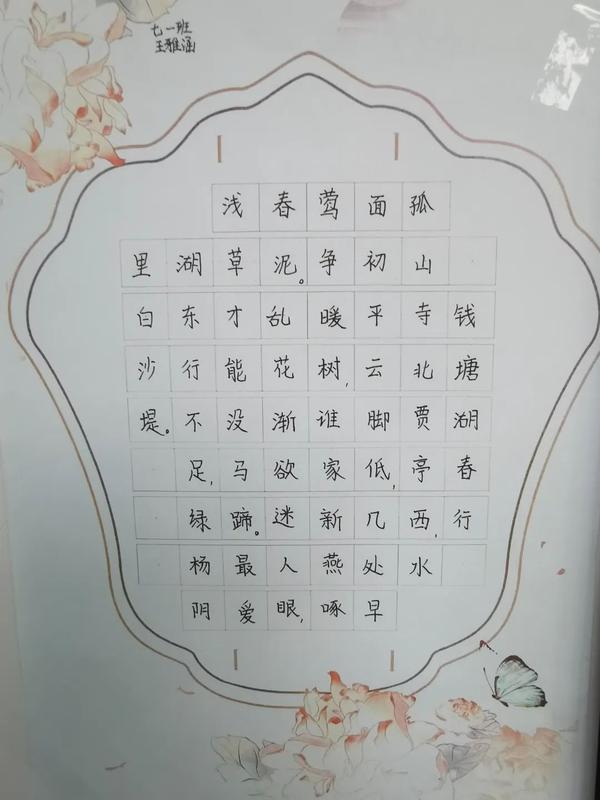 七一班
王雅涵
钱塘湖春行
孤山寺北贾亭西,水
面初平云脚低,几处早
莺争暖树,谁家新燕啄
春泥。乱花渐欲迷人眼,
浅草才能没马蹄。最爱
湖东行不足,绿杨阴
里白沙堤。